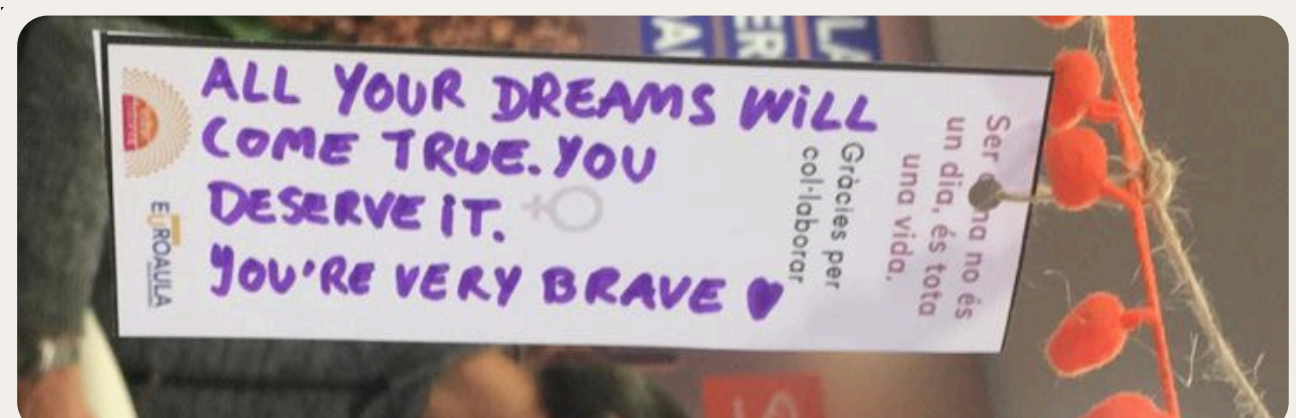 ALL YOUR DREAMS WiLL
COME TRUE. YOU
DESERVE iT.
YOU'RE VERY BRAVE ♥
Gràcies per
col·laborar
Ser dona no és
un dia, és tota
una vida.
EUROAULA
LA
ER